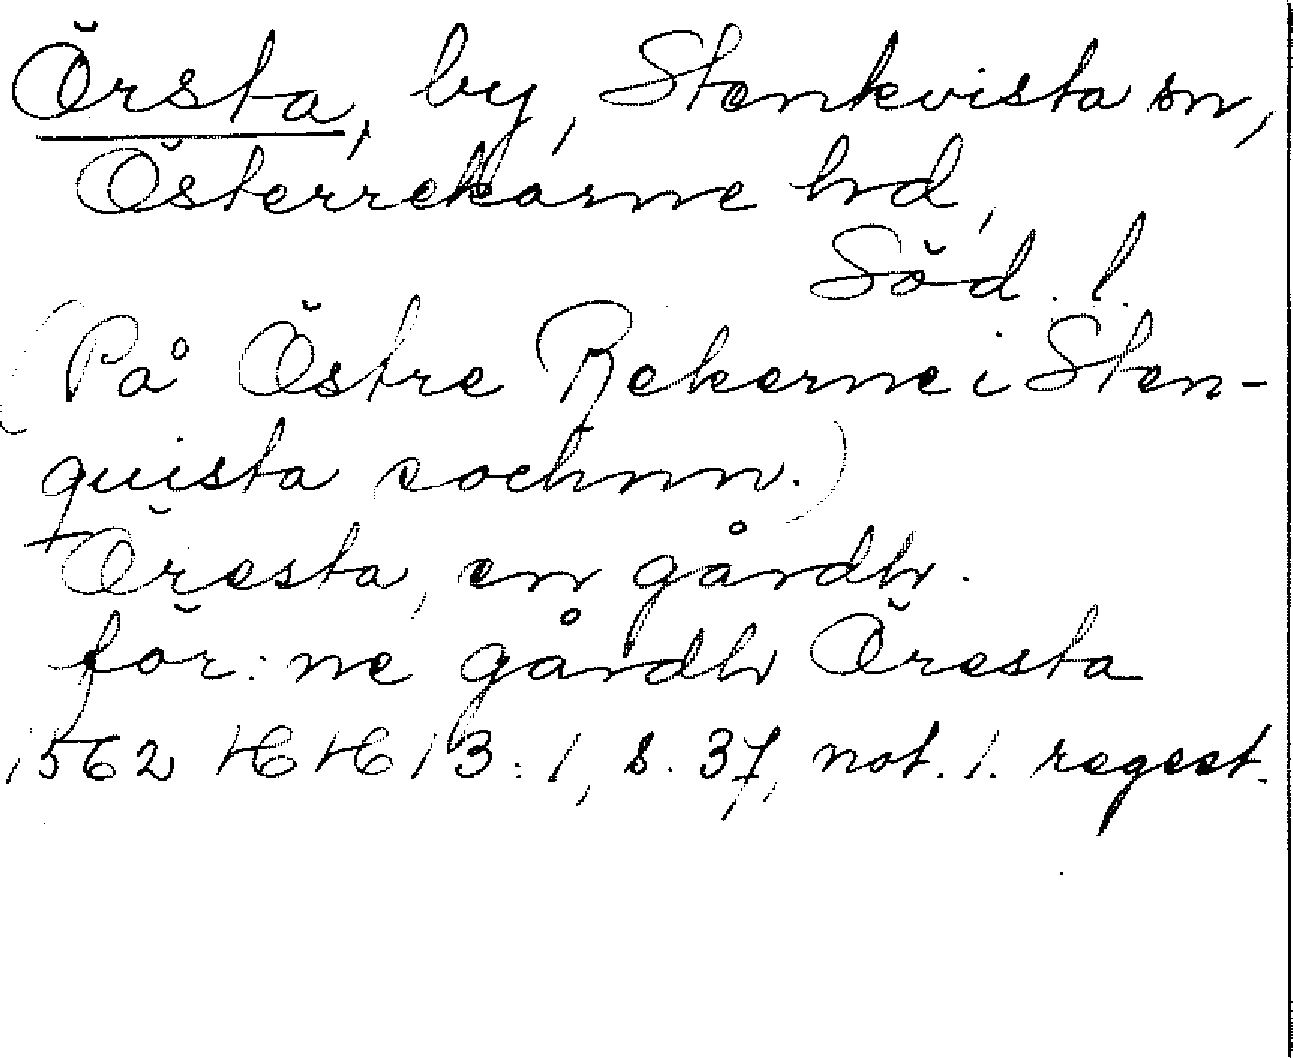 Örsta, by, Stenkvista sn,
Österrekarne hd,
Söd. l.
(På Östre Rekerne i Sten-
quista sochnn.)
Öresta, en gårdh.
för:ne gårdh Öresta
1562 HH 13:1, s. 37, not. 1. regest.